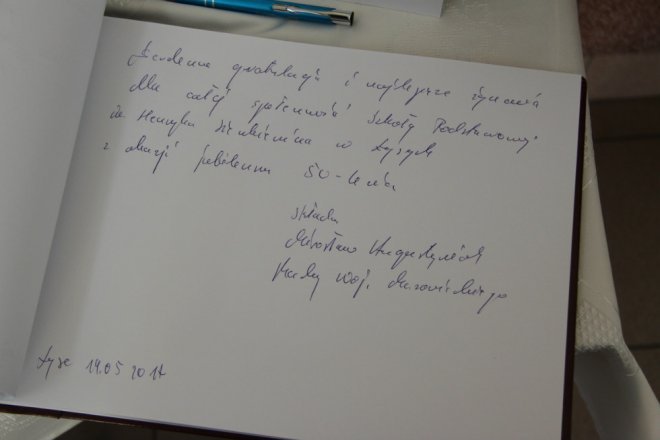 Serdeczne gratulacje i najlepsze życzenia
dla całej społeczności Szkoły Podstawowej
im Henryka Sienkiewicza w Łysych
z okazji jubileuszu 50-lecia
składa
Mirosław Augustyniak
Radny Woj. Mazowieckiego
Łyse 19.05 2017